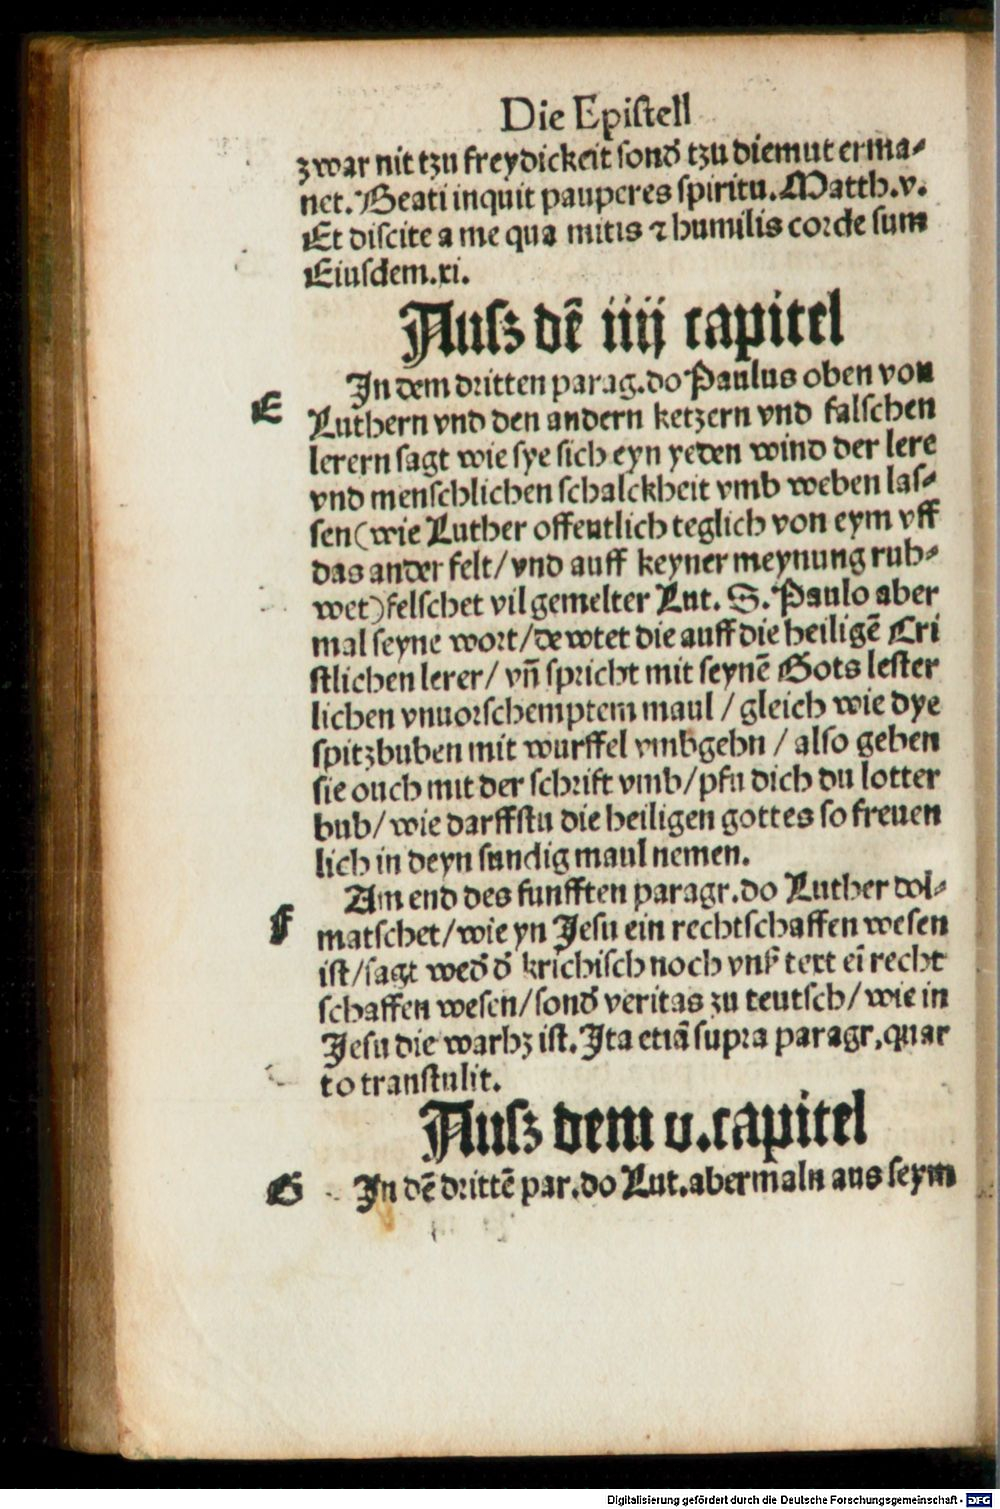 Die Epistell
zwar nit tzu freydickeit sond̕ tzu diemut erma⸗
net. Beati inquit pauperes spiritu. Matth. v.
Et discite a me qua mitis ⁊ humilis corde sum
Eiusdem. xi.
Ausz dē iiij capitel
E
In dem dritten parag. do Paulus oben von
Luthern vnd den andern ketzern vnd falschen
lerern sagt wie sye sich eyn yeden wind der lere
vnd menschlichen schalckheit vmb weben las⸗
sen (wie Luther offentlich teglich von eym vff
das ander felt / vnd auff keyner meynung ruh⸗
wet) felschet vil gemelter Lut. S. Paulo aber
mal seyne wort / dewtet die auff die heiligē Cri
stlichen lerer / vn̄ spricht mit seynē Gots lester
lichen vnuorschemptem maul / gleich wie dye
spitzbuben mit wurffel vmbgehn / also gehen
sie ouch mit der schrift vmb / pfu dich du lotter
bub / wie darffstu die heiligen gottes so freuen
lich in deyn sundig maul nemen.
F
Am end des funfften paragr. do Luther dol⸗
matschet / wie yn Jesu ein rechtschaffen wesen
ist / sagt wed̕ d̕ krichisch noch vnß text eī recht
schaffen wesen / sond̕ veritas zu teutsch / wie in
Jesu die warhꝫ ist. Ita etiā supra paragr. quar
to transtulit.
Ausz dem v. capitel
G
In dē drittē par. do Lut. abermaln aus seym
Digitalisierung gefördert durch die Deutsche Forschungsgemeinschaft - DFG